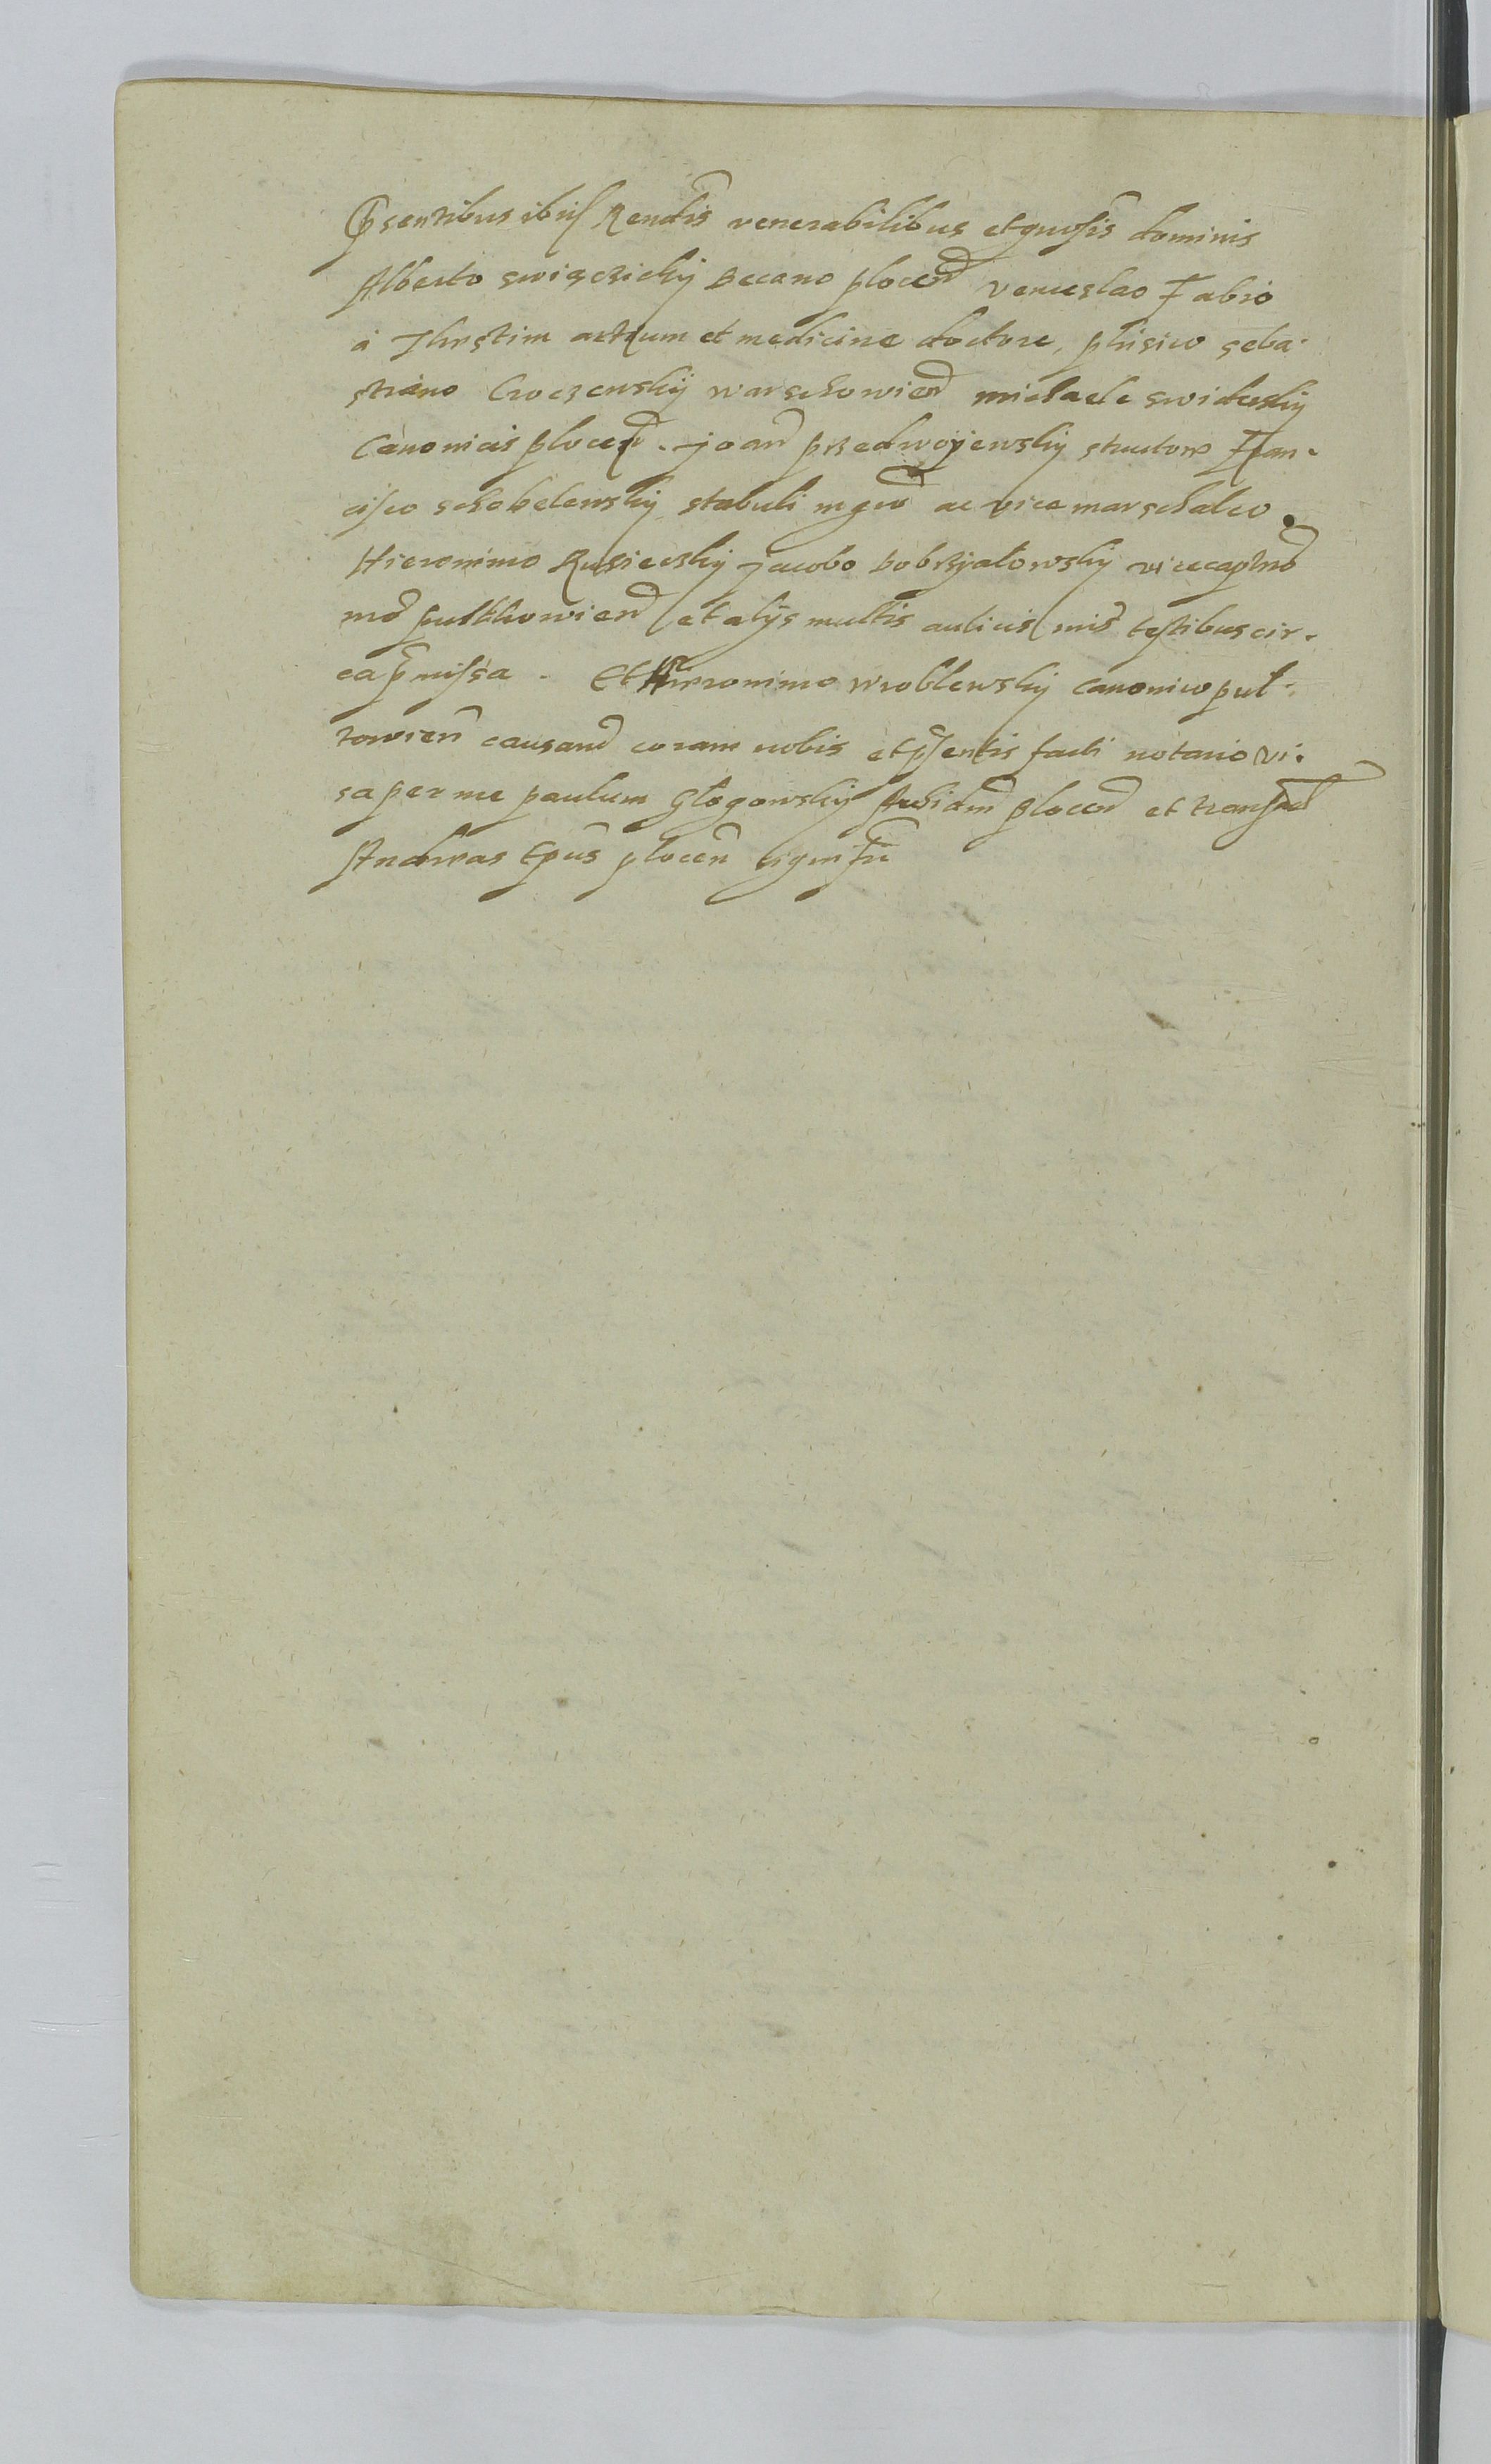 Psentibus ibid Rendis venerabilibus et gnosis dominis
Alberto swiqczickij Decano plocen venceslao Fabro
a Thustim artium et medicine doctore, phisico seba-
stiano Croczewskij warschowien michaele swiderskij
Canonicis plocen. joan przedwojewskij structore Fran-
cisco schebelewskij stabuli mgro ac vice marschalco
Hieronimo Rusieczkij jacobo Dobrzjalowskij vicecaptno
pultthowien et alijs multis aulicis testibus cir-
ca pmissa. Et Hieronimo wroblewskij canonico pul-
towien causarum coram nobis et psentis facti notario vi-
sa per me paulum Glogowskij Archidnm plocen et
Andreas Epus plocen